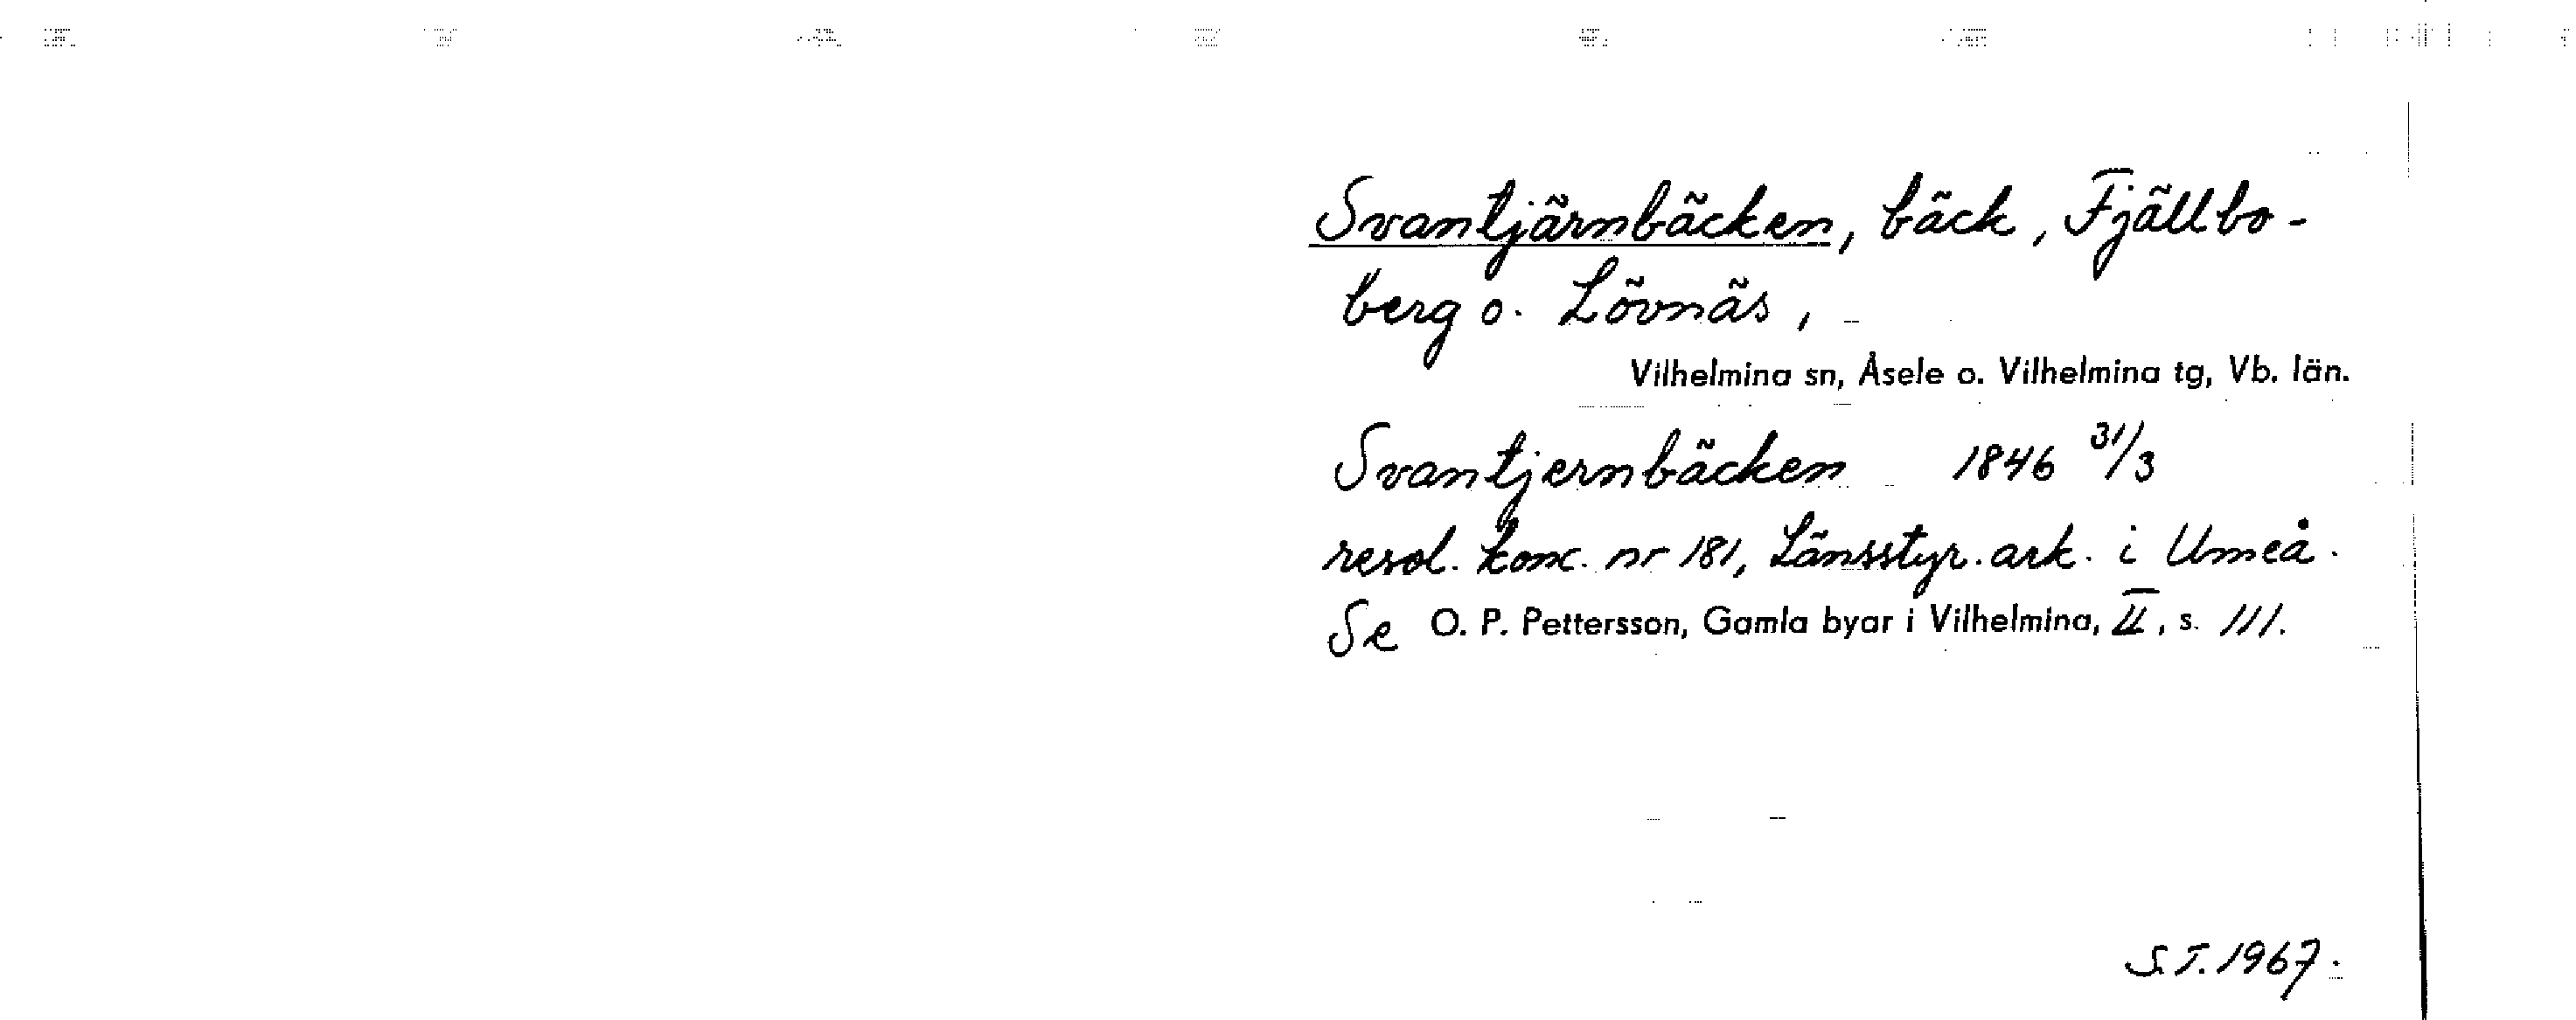 Svantjärnbäcken, bäck, Fjällbo-
berg o. Lövnäs,
Vilhelmina sn, Åsele o. Vilhelmina tg, Vb. län.
Svantjernbäcken 1846 31/3
resol. konc. nr 181, Länsstyr. ark. i Umeå.
Se O. P. Pettersson, Gamla byar i Vilhelmina, II, s. 111.
S.T. 1967.